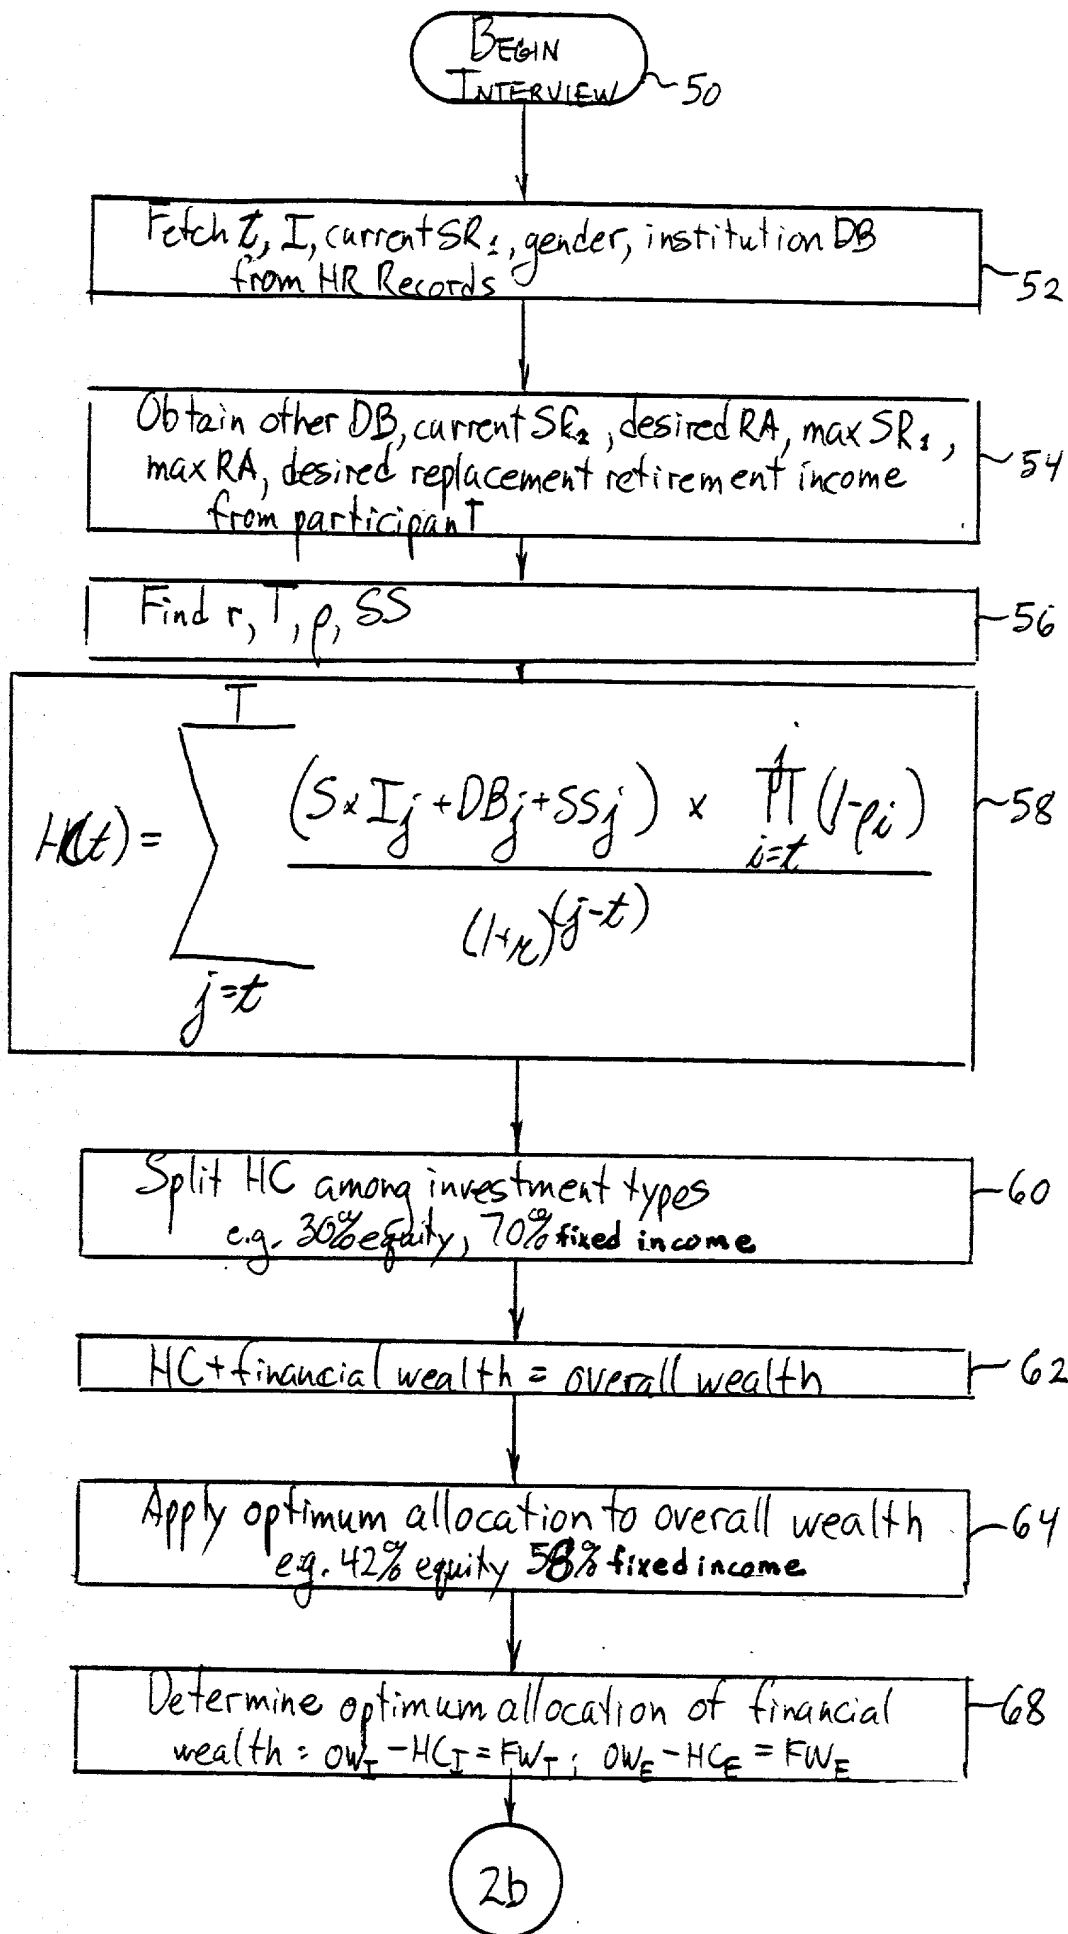 BEGIN
INTERVIEW
50
Fetch t, I, current SR₁, gender, institution DB
from HR Records
52
Obtain other DB, current SR₂, desired RA, max SR₁,
max RA, desired replacement retirement income
from participanT
54
Find r, T, ρ, SS
56
T
(S × I_j + DB_j + SS_j) × ∏ (1-ρ_i)
j
i=t
HC(t) = Σ
(1+r)^(j-t)
j=t
58
Split HC among investment types
e.g. 30% equity, 70% fixed income
60
HC + financial wealth = overall wealth
62
Apply optimum allocation to overall wealth
e.g. 42% equity 58% fixed income
64
Determine optimum allocation of financial
wealth: OW_I - HC_I = FW_I; OW_E - HC_E = FW_E
68
2b